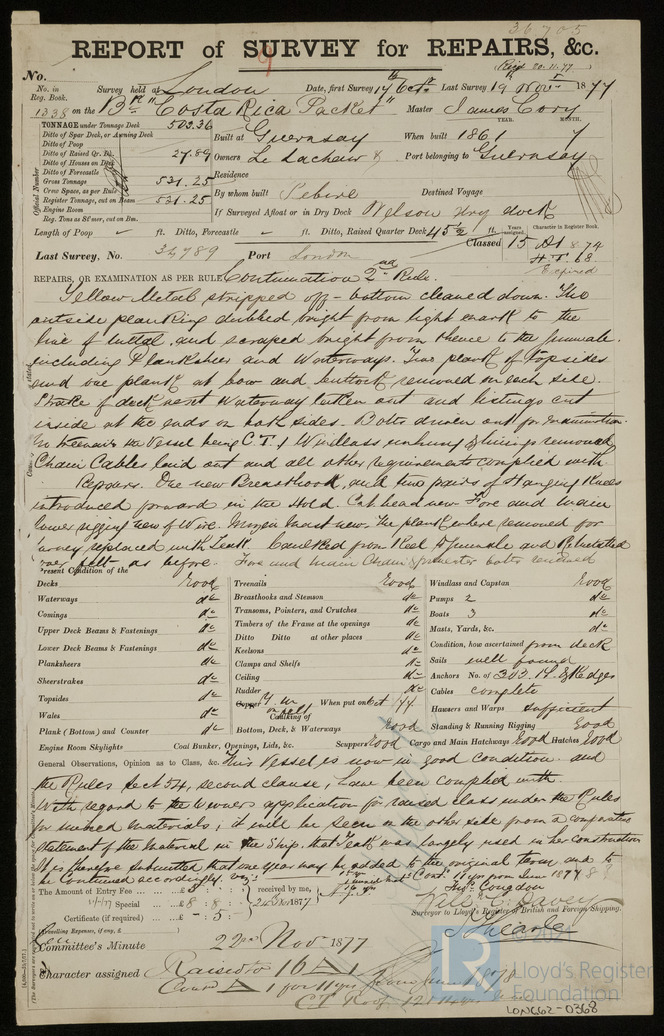 36705
REPORT of SURVEY for REPAIRS, &c.
No.
Recd 20.11.77
No. in Reg. Book. Survey held at London Date, first Survey 17th Octr Last Survey 19th Novr 1877
1338 on the Bk "Costa Rica Packet" Master James Cory
TONNAGE under Tonnage Deck 503.36
Ditto of Spar Deck, or Awning Deck
Ditto of Poop
Ditto of Raised Qr. Dk. 27.89
Ditto of Houses on Deck
Ditto of Forecastle
Gross Tonnage 531.25
Crew Space, as per Rule
Register Tonnage, cut on Beam 531.25
Engine Room
Reg. Tons as St'mer, cut on Bm.
Official Number
YEAR. MONTH.
Built at Guernsey When built 1861 7
Owners Le Lacheur & Port belonging to Guernsey
Residence
By whom built Sebire Destined Voyage
If Surveyed Afloat or in Dry Dock Nelson dry dock
Length of Poop ft. Ditto, Forecastle ft. Ditto, Raised Quarter Deck 45½ ft.
Years assigned. Character in Register Book.
Classed 15 A1 8.74
H.T. 68
Expired
Last Survey, No. 34789 Port London
REPAIRS, OR EXAMINATION AS PER RULE Continuation 2nd Rule.
Yellow Metal stripped off - bottom cleaned down. The
outside planking dubbed bright from light mark to the
line of and scraped bright from thence to the Gunwale.
including Planksheer and Waterways. Two plank of topsides
and one plank at bow and buttock removed on each side.
Strake of deck next Waterway taken out and listings cut
inside at the ends on both sides. Bolts driven out for examination.
the Vessel being C.T.f Windlass unhung & linings removed
Chain Cables laid out and all other requirements complied with.
Repairs. One new Breasthook, and two pairs of Hanging Knees
introduced forward in the Hold. Cat head new. Fore and Main
lower rigging new of Wire. Mizen Mast new. The plank where removed for
survey replaced with Teak. Caulked from Keel to Gunwale and Remetalled
over felt as before. Fore and Main Chain & preventer bolts renewed
Present Condition of the
Decks Good
Waterways do
Comings do
Upper Deck Beams & Fastenings do
Lower Deck Beams & Fastenings do
Planksheers do
Sheerstrakes do
Topsides do
Wales do
Plank (Bottom) and Counter do
Engine Room Skylights
Treenails Good
Breasthooks and Stemson do
Transoms, Pointers, and Crutches do
Timbers of the Frame at the openings do
Ditto Ditto at other places do
Keelsons do
Clamps and Shelfs do
Ceiling do
Rudder do
Copper Y M on felt When put on Oct 77
Caulking of
Bottom, Deck, & Waterways Good
Coal Bunker, Openings, Lids, &c. Scuppers Good Cargo and Main Hatchways Good Hatches Good
Windlass and Capstan Good
Pumps 2 do
Boats 3 do
Masts, Yards, &c. do
Condition, how ascertained from deck
Sails well found
Anchors No. of 3 B. 1 S. & 2 Kedges
Cables complete
Hawsers and Warps sufficient
Standing & Running Rigging Good
General Observations, Opinion as to Class, &c. This Vessel is now in good condition and
the Rules Sect 54, second clause, have been complied with
With regard to the Owners application for raised class under the Rules
for mixed materials, it will be seen on the other side from a comparative
statement of the material in the Ship, that Teak was largely used in her construction
It is therefore submitted that one year may be added to the original term and to
be Continued accordingly viz:
The Amount of Entry Fee ... £ 3 : : received by me,
Special ... £ 8 : 8 : 20 Novr 1877
Certificate (if required) ... - : 5 :
(Travelling Expenses, if any, £ )
Cont. 11 yrs from June 1877 88
Jno Congdon
Will. E. Davey
Surveyor to Lloyd's Register of British and Foreign Shipping.
J. Hearle
Committee's Minute 22nd Nov 1877
Character assigned Raised to 16 A 1
Cont A 1 for 11 yrs from June 1877
© 2021
Lloyd's Register
Foundation
LON662-0368